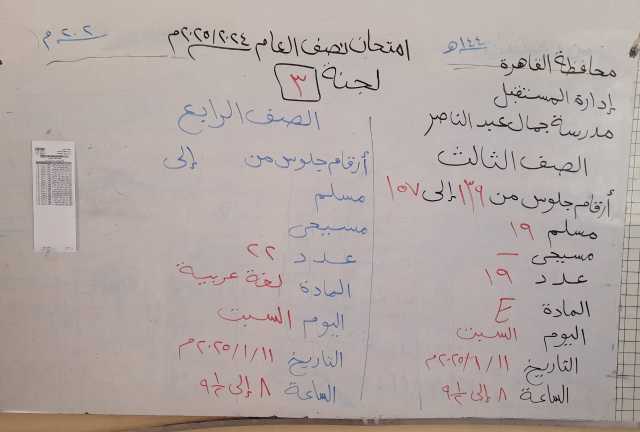 ١٤٤ هـ
٢٠٢ م
امتحان نصف العام ٢٠٢٥/٢٠٢٤م
لجنة ٣
محافظة القاهرة
إدارة المستقبل
مدرسة جمال عبد الناصر
الصف الثالث
أرقام جلوس من ١٣٩ إلى ١٥٧
مسلم ١٩
مسيحى —
عدد ١٩
المادة E
اليوم السبت
التاريخ ٢٠٢٥/١/١١م
الساعة ٨ إلى ½ ٩
الصف الرابع
أرقام جلوس من إلى
مسلم
مسيحى
عدد ٢٢
المادة لغة عربية
اليوم السبت
التاريخ ٢٠٢٥/١/١١م
الساعة ٨ إلى ½ ٩